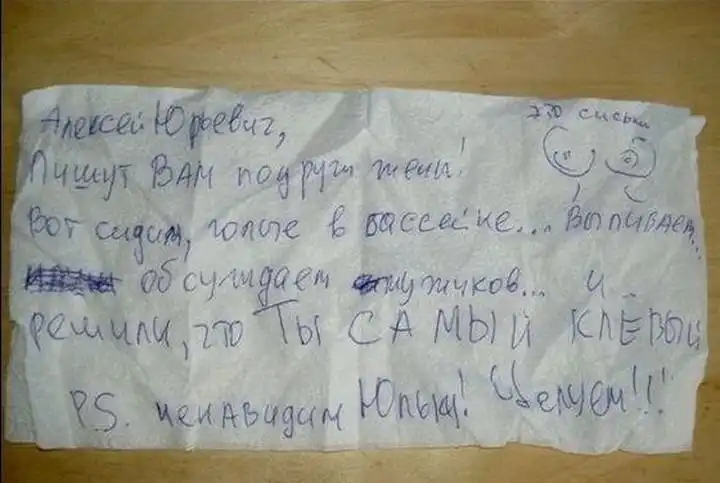 это сиськи
Алексей Юрьевич,
Пишут ВАМ подруги жены!
Вот сидим, голые в бассейне... Выпиваем...
обсуждаем мужиков... и...
решили, что ТЫ САМЫЙ КЛЕВЫЙ
P.S. ненавидим Юльку! Целуем!!!